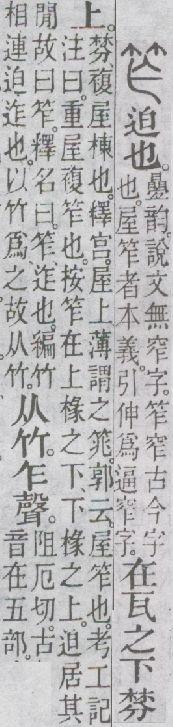 笮 迫也。㬪韵。說文無窄字。笮窄古今字也。屋笮者本義。引伸爲逼窄字。在瓦之下棼
上。棼複屋棟也。釋宫。屋上薄謂之筄。郭云。屋笮也。考工記注曰。重屋複笮也。按笮在上椽之下。下椽之上。迫居其
閒故曰笮。釋名曰。笮迮也。編竹相連迫迮也。以竹爲之。故从竹。从竹。乍聲。阻厄切。古音在五部。